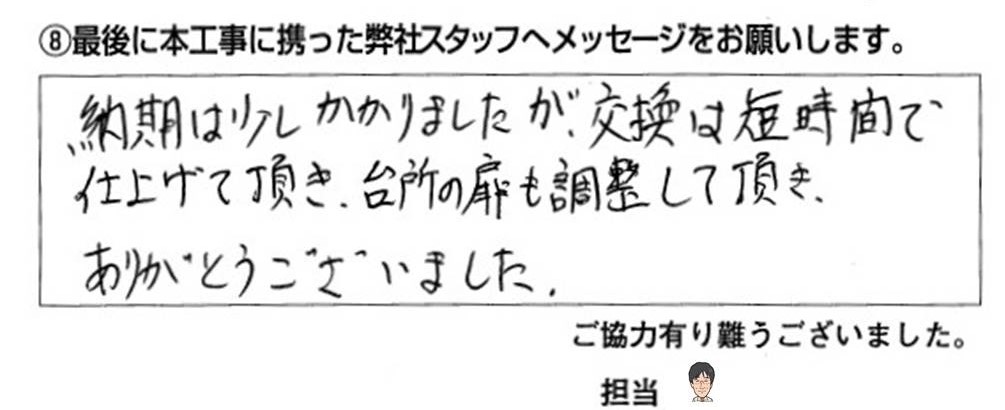 ⑧最後に本工事に携った弊社スタッフへメッセージをお願いします。
納期は少しかかりましたが、交換は短時間で
仕上げて頂き、台所の扉も調整して頂き、
ありがとうございました。
ご協力有り難うございました。
担当